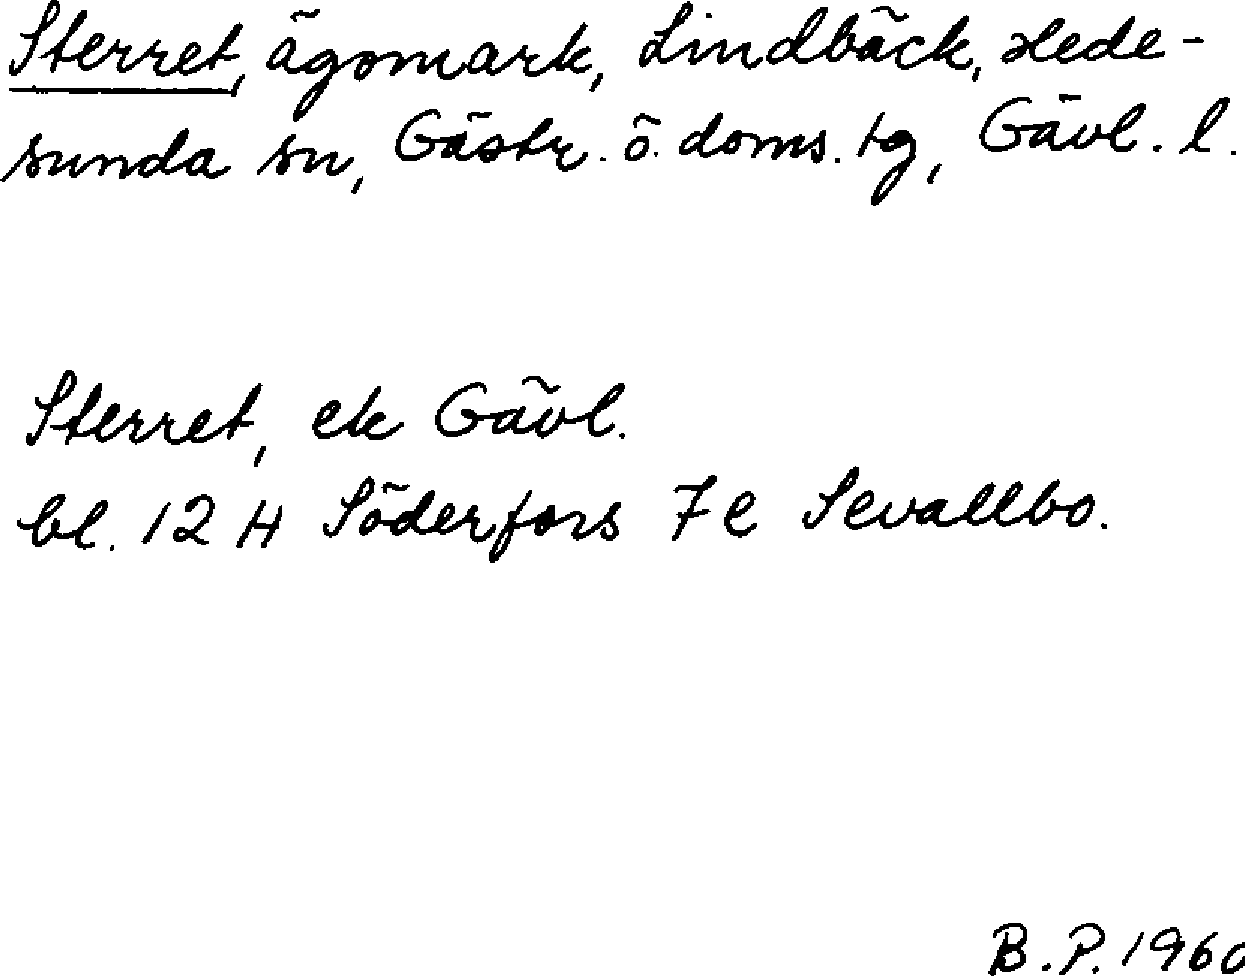 Sterret, ägomark, Lindbäck, Hede-
sunda sn, Gästr. ö. doms. tg, Gävl. l.
Sterret, ek Gävl.
bl. 12 H Söderfors 7e Sevallbo.
B.P. 1960